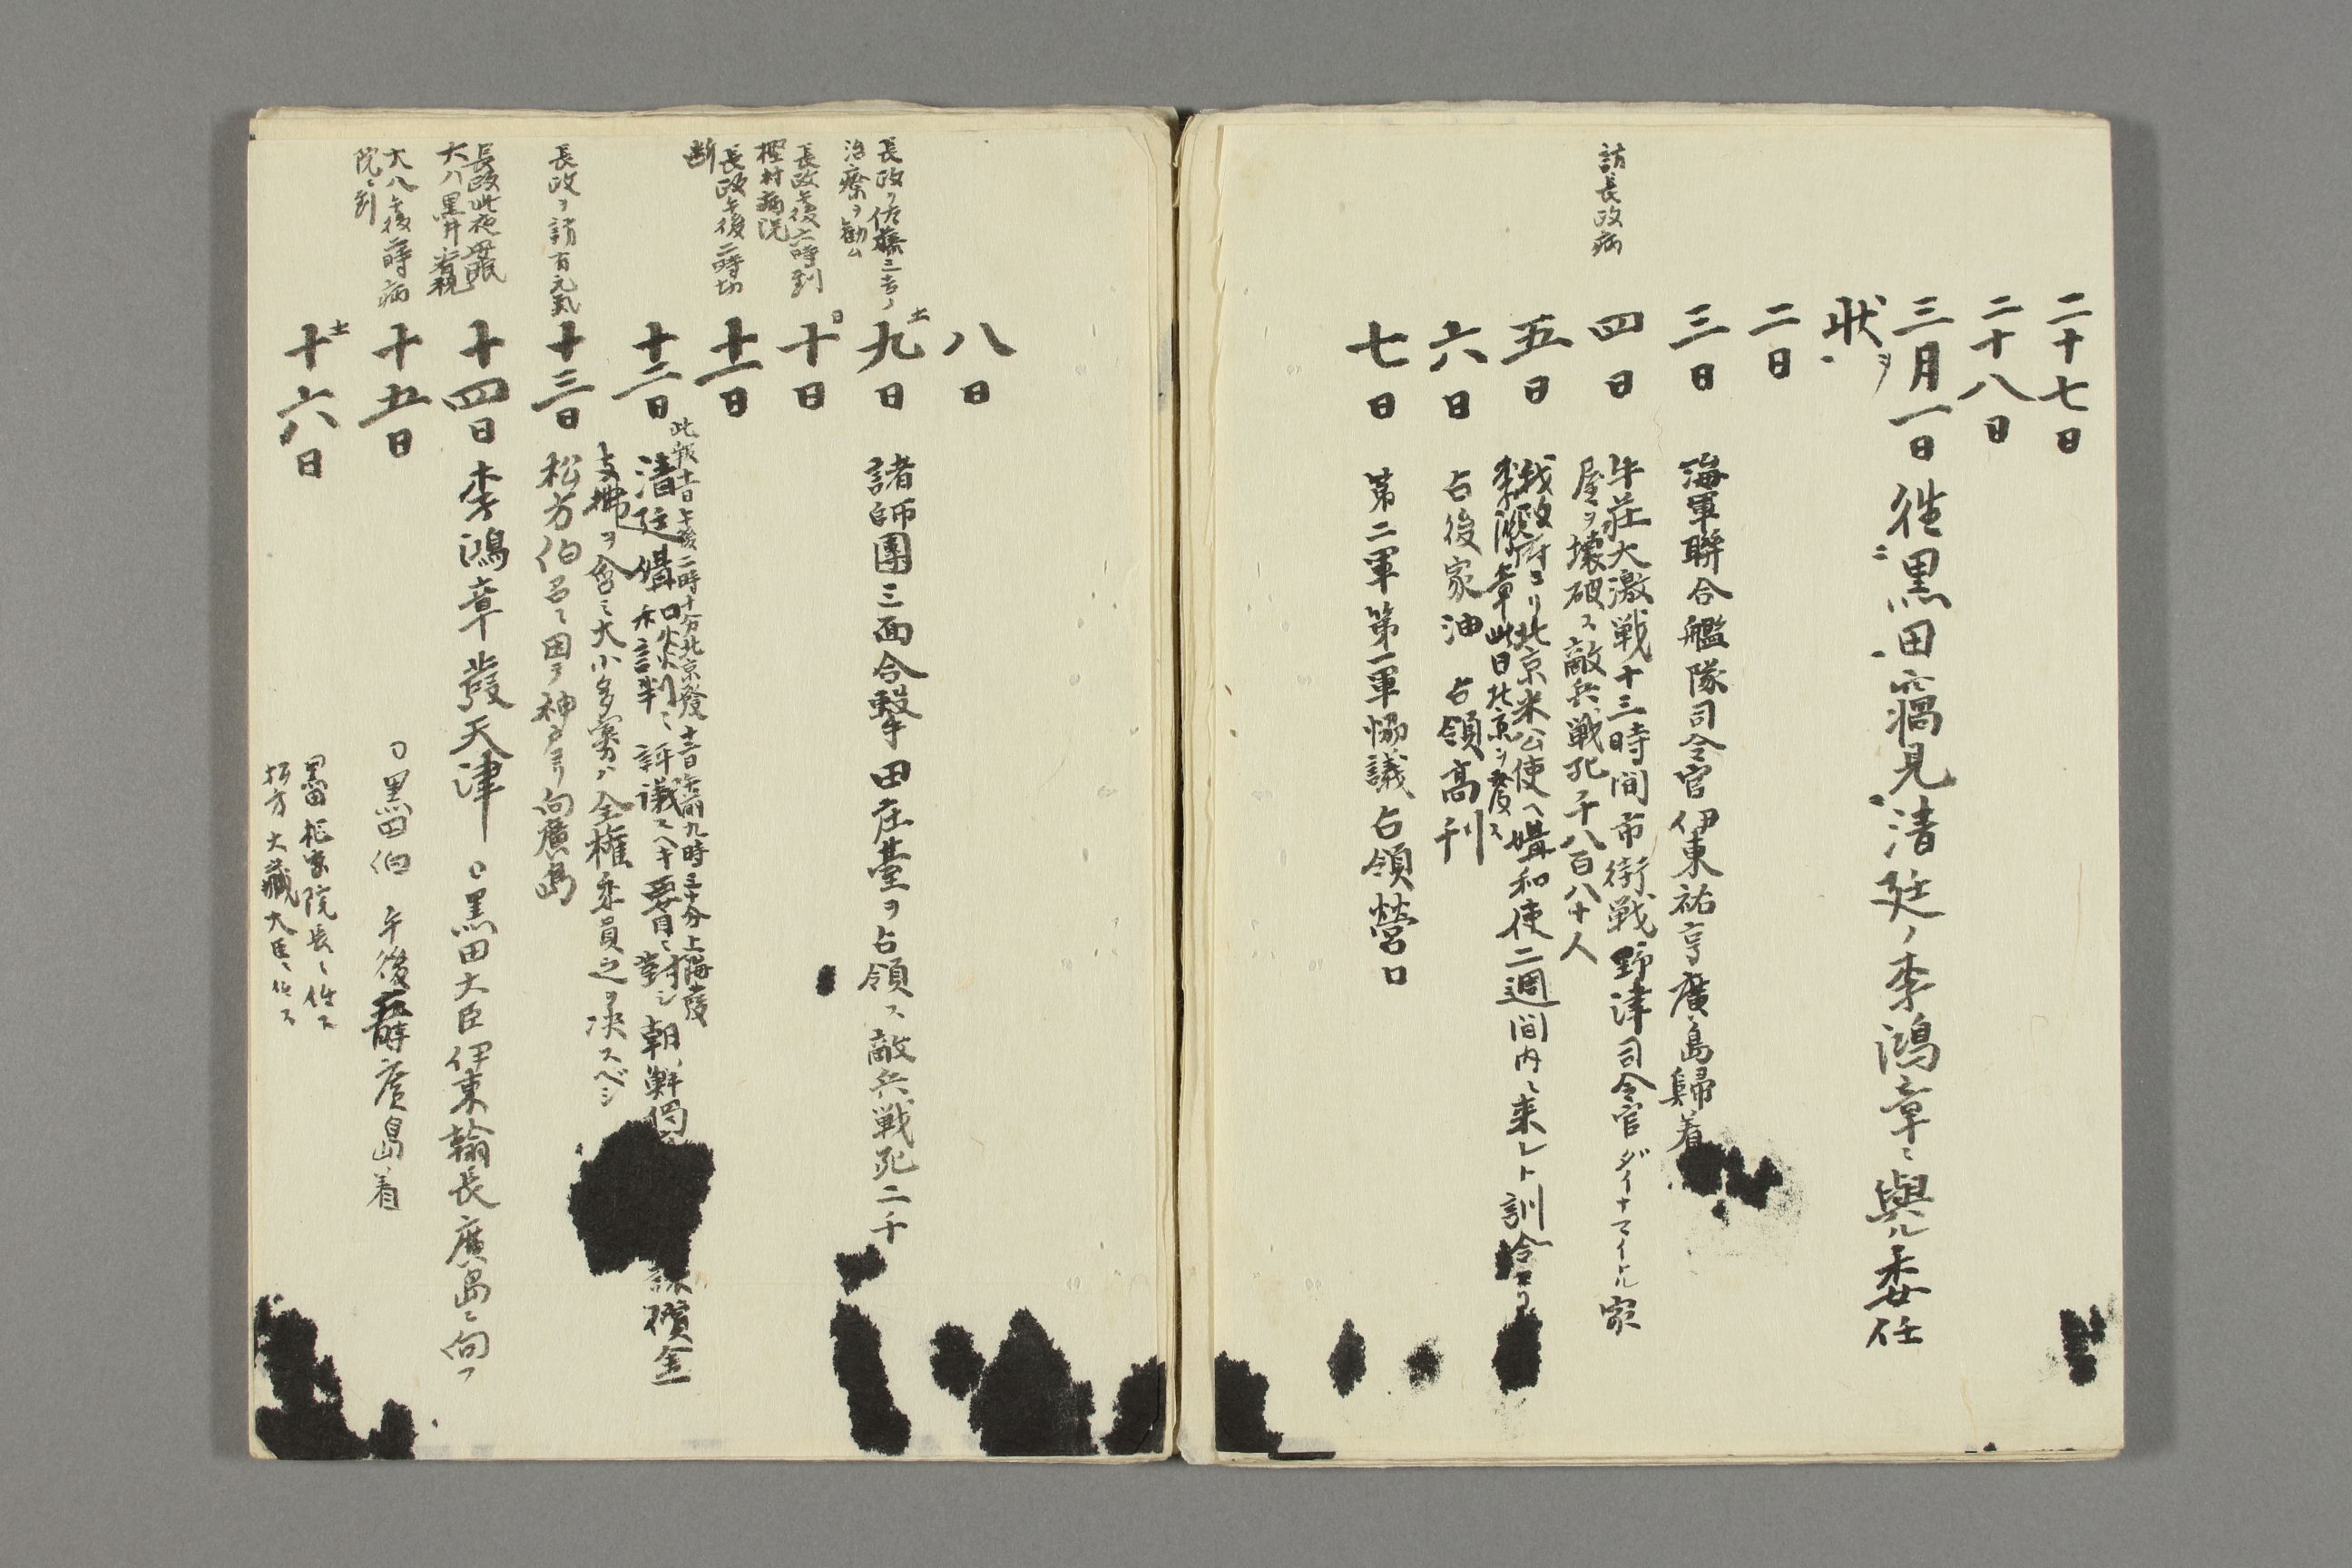 二十七日
二十八日
三月一日 徃ニ黒田窩見清廷ノ李鴻章ニ與ル委任
状ヲ
二日
三日 海軍聯合艦隊司令官伊東祐亨廣島歸着
訪長政病
四日 牛荘大激戦十三時間市街戦野津司令官ダイナマイトル家
屋ヲ壊破ス敵兵戦死千八百八十人
五日 我政府ヨリ北京米公使ヘ媾和使二週間内ニ来レト訓令
李鴻章此日北京ヲ發ス
六日 占後家油 占領高刊
七日 第二軍第一軍協議占領營口
八日
長政ヲ佐藤三吉ノ
治療ヲ勧ム
九日 土 諸師團三面合撃田庄臺ヲ占領ス敵兵戦死二千
長政午後六時到
樫村病院
十日 日
長政午後二時切
断
十一日
此報十一日午後二時十分北京發十二日午前九時三十分上海發
十二日 清廷媾和談判ニ評議スヘキ要目ニ對シ朝鮮獨 償金
支拂ヲ含ミ大小多寡ハ全権委員之ヲ决スベシ
長政ヲ訪有元氣
十三日 松方伯召ニ因ヲ神戸ヨリ向廣島
長政此夜安眠
大八黒井看視
十四日 李鴻章發天津 〇黒田大臣伊東翰長廣島ニ向フ
大八午後一時病
院ニ到
十五日 〇黒田伯 午後 時廣島着
十六日 土
黒田枢密院長ニ任ス
松方大藏大臣ニ任ス